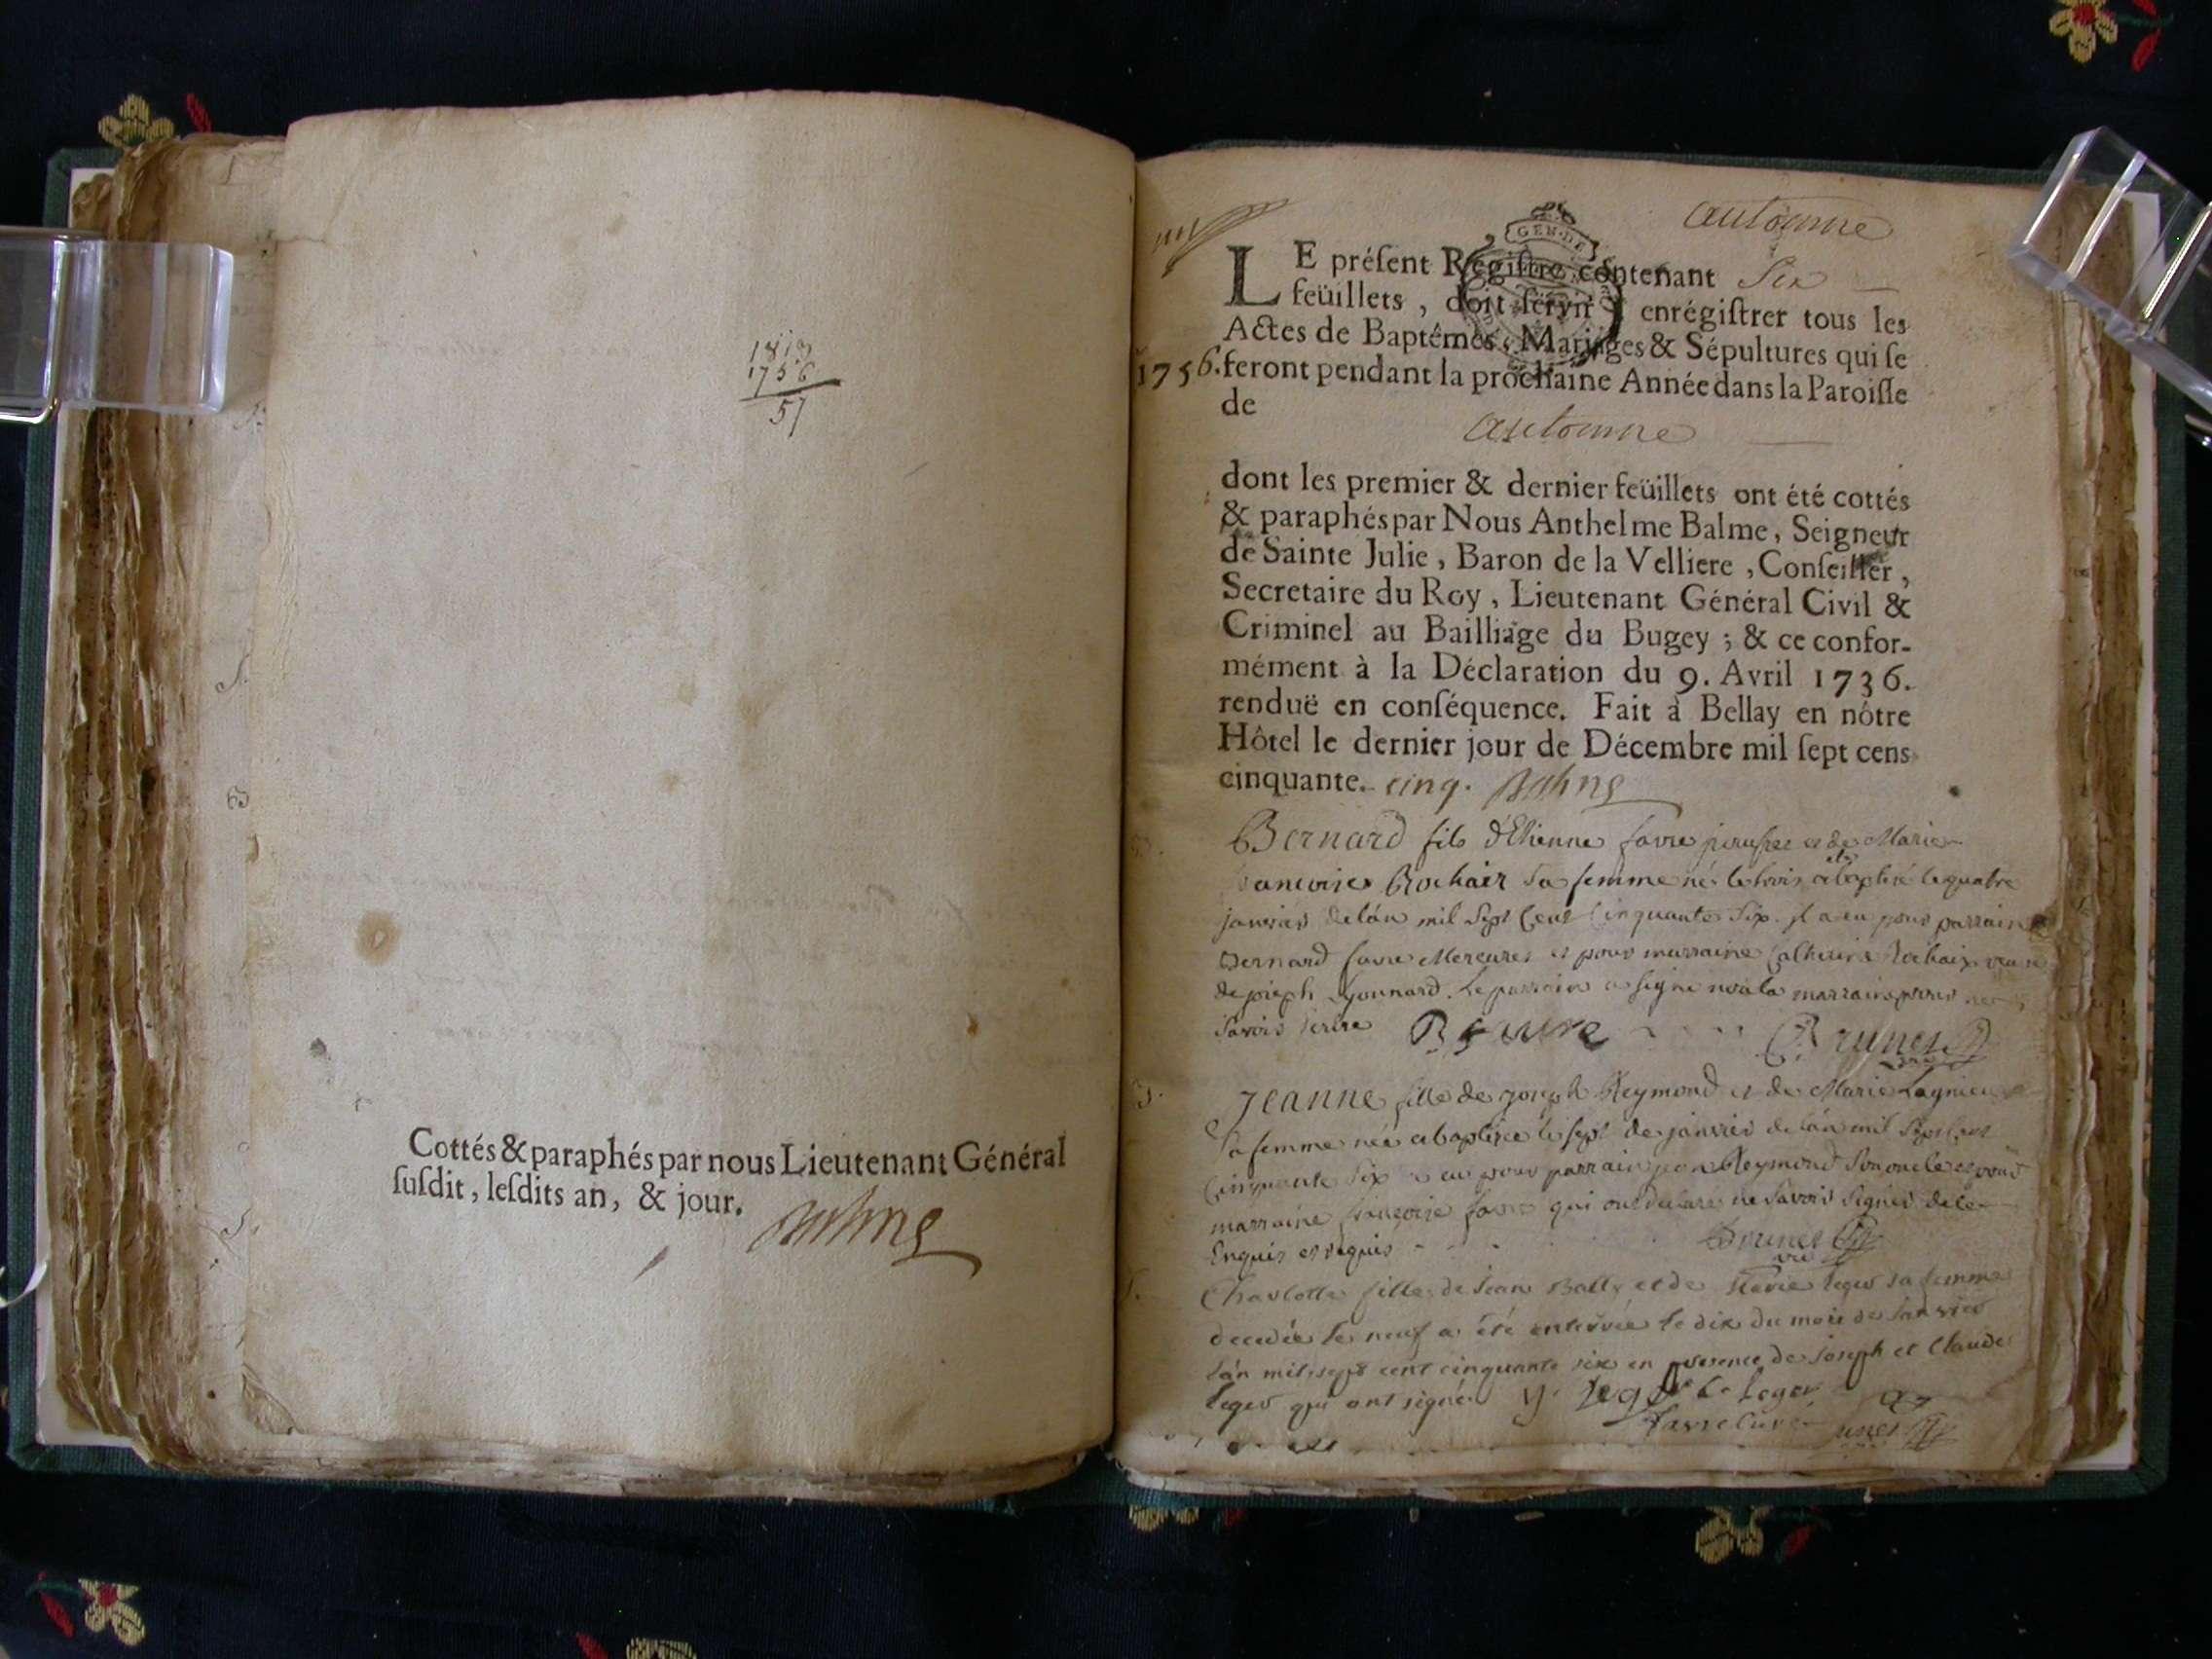 1813
1756
57
Cottés & paraphés par nous Lieutenant Général
ſuſdit, leſdits an, & jour.
Balme
autonne
GEN·DE
LE préſent Régiſtre contenant Six
feüillets, doit ſervir à enrégiſtrer tous les
Actes de Baptêmes, Mariages & Sépultures qui ſe
1756. feront pendant la prochaine Année dans la Paroiſſe
de
autonne
dont les premier & dernier feüillets ont été cottés
& paraphés par Nous Anthelme Balme, Seigneur
de Sainte Julie, Baron de la Velliere, Conſeiller,
Secretaire du Roy, Lieutenant Général Civil &
Criminel au Bailliage du Bugey; & ce confor-
mément à la Déclaration du 9. Avril 1736.
renduë en conſéquence. Fait à Bellay en nôtre
Hôtel le dernier jour de Décembre mil ſept cens
cinquante. cinq. Balme
Bernard fils d'Etienne favre et de Marie
francoise Rochaix Sa femme né le trois a été baptisé le quatre
janvier de l'an mil Sept Cent Cinquante Six. il a eu pour parrain
Bernard favre et pour marraine Catherine Rochaix veuve
de joseph Lyonnard. Le parrain a signé non la marraine pour ne
Savoir Ecrire B favre Brunet
Jeanne fille de joseph Reymond et de Marie Lagnieu
Sa femme née et baptisée le sept de janvier de l'an mil Sept Cent
Cinquante Six a eu pour parrain jean Reymond Son oncle et pour
marraine françoise favre qui ont declaré ne Savoir Signer de ce
Enquis et requis Brunet
vic
Charlotte fille de Jean Bally et de leger sa femme
decedée le neuf a été enterrée le dix du mois de Janvier
l'an mil sept cent cinquante six en presence de joseph et Claude
leger qui ont signé. J. leger C. leger
favre curé